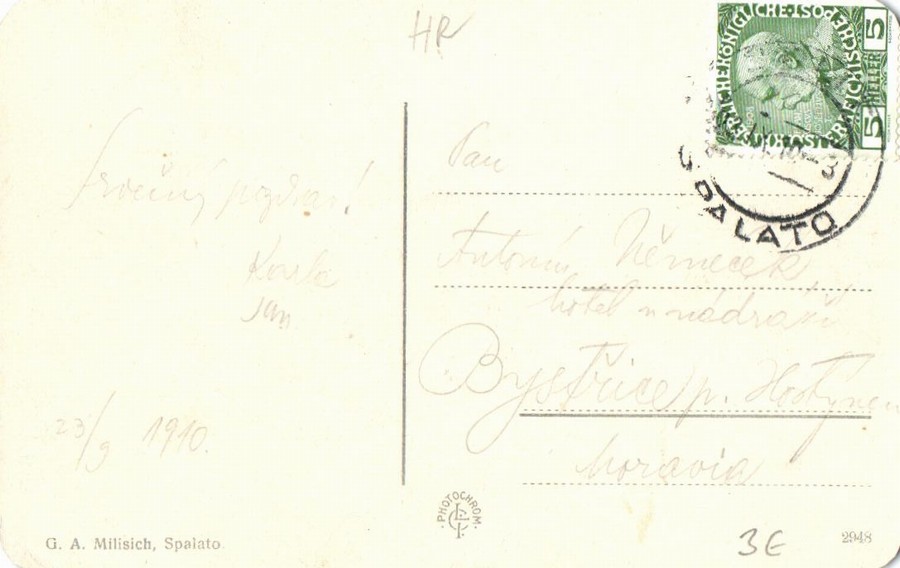 HR
KAISERLICHE KÖNIGLICHE ÖSTERREICHISCHE POST
5 HELLER 5
SPALATO
Srdečný pozdrav!
Karla
Jan
23/9 1910.
Pan
Antonín Němeček
hotel u nádraží
Bystřice p. Hostýnem
Moravia
PHOTOCHROM.
G. A. Milisich, Spalato
3E
2948